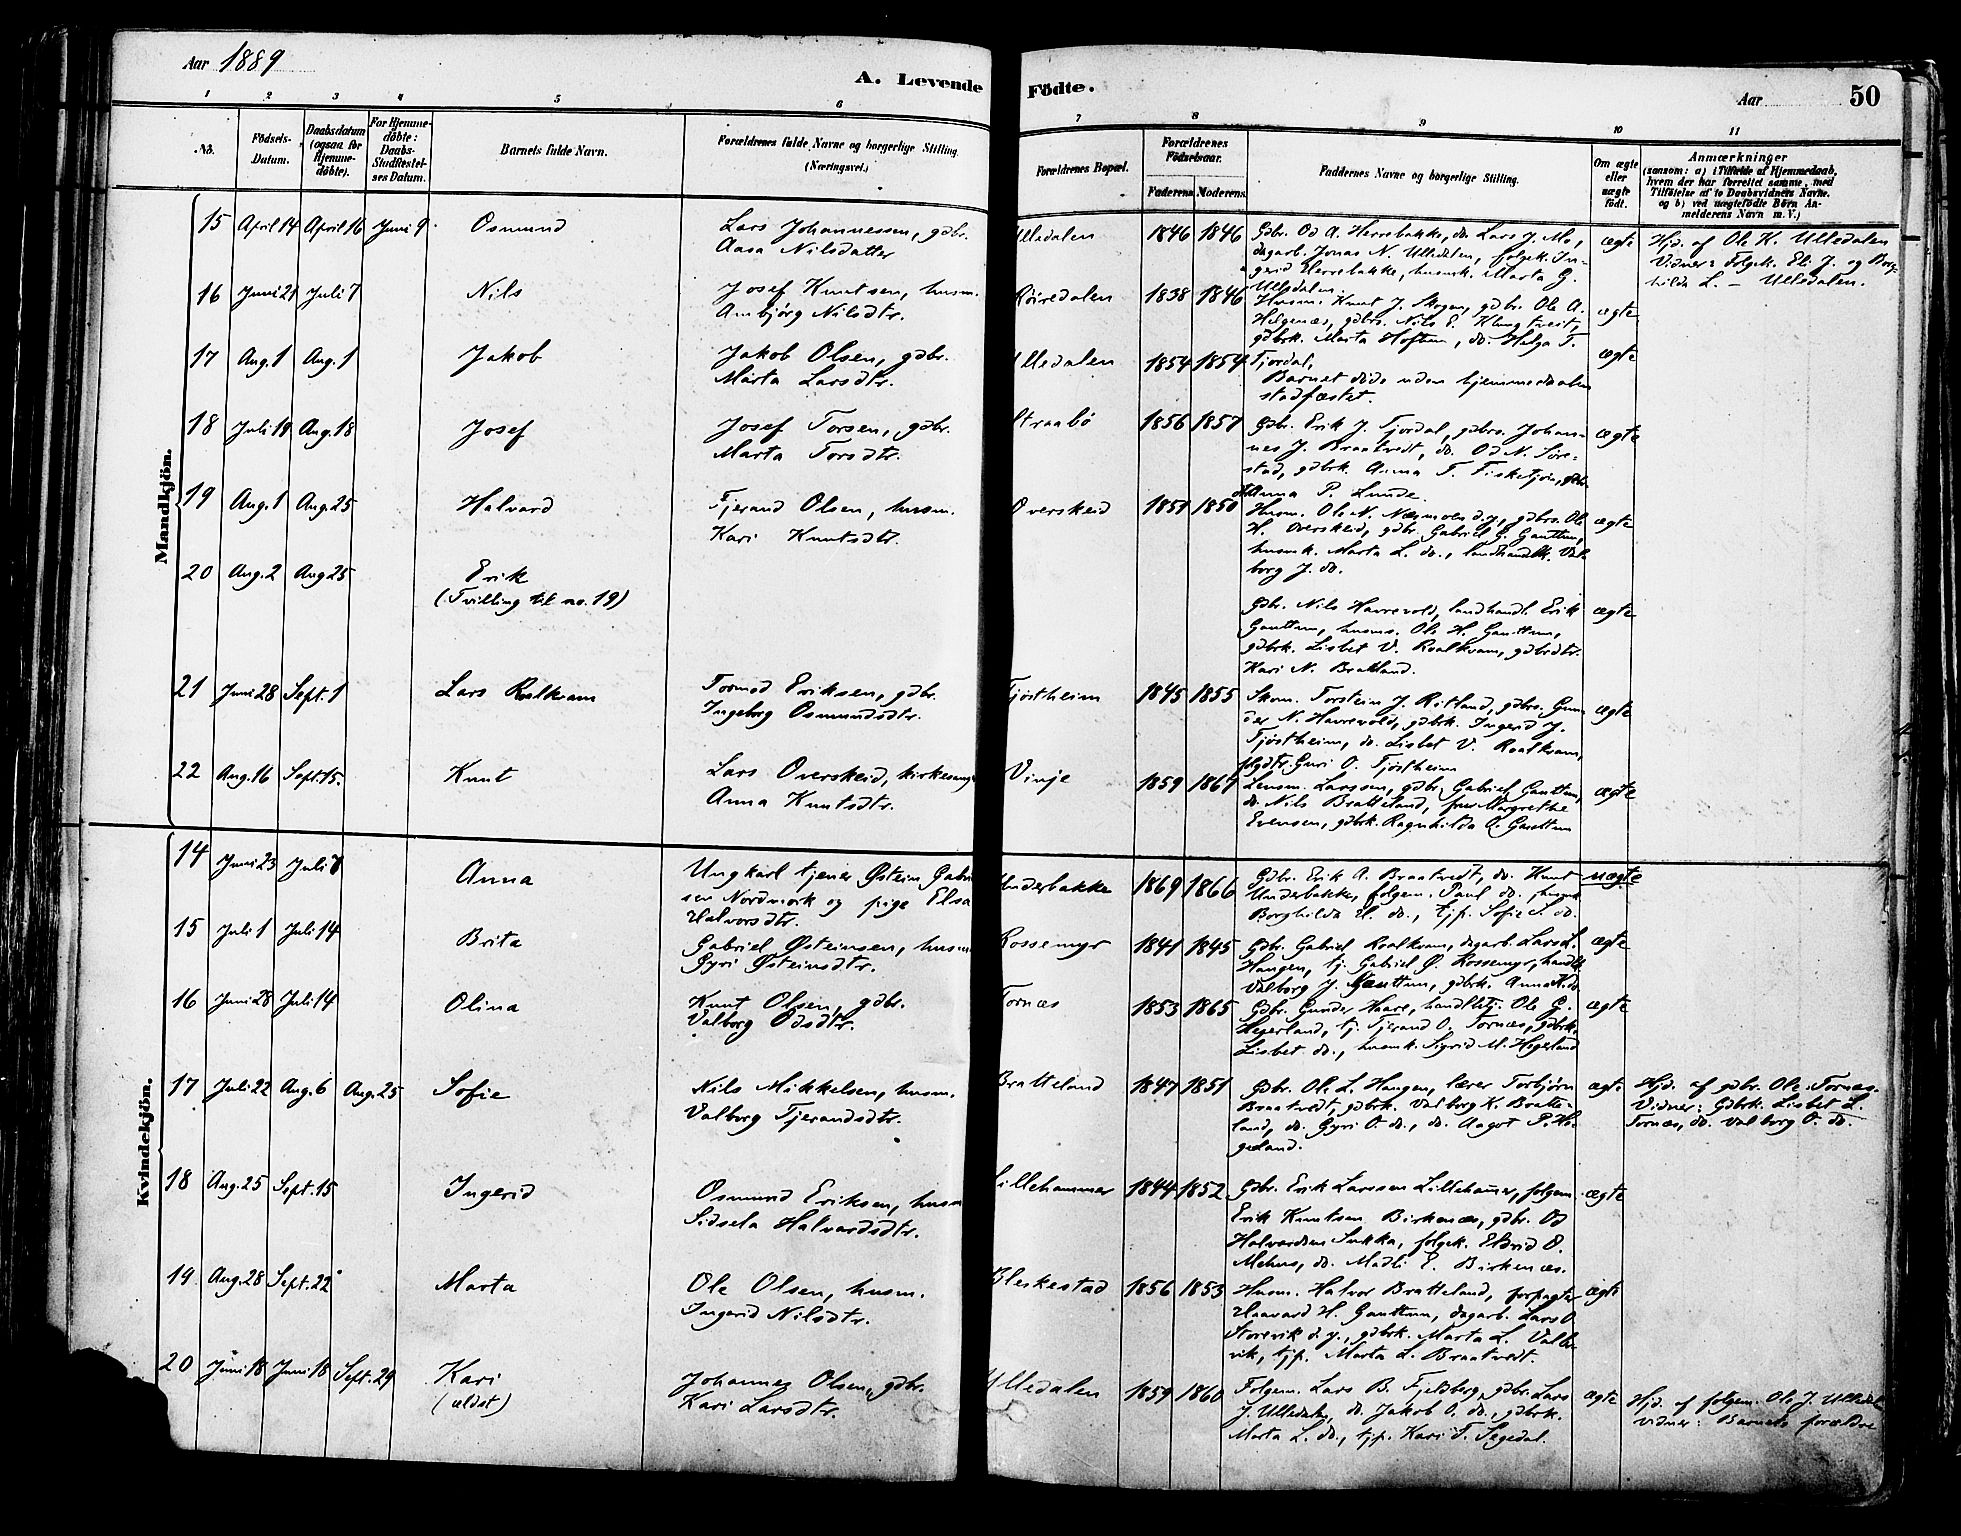 Aar 1889
A. Levende Födte.
Aar 50
1 2 3 4 5 6 7 8 9 10 11
No.
Födsels-Datum.
Daabsdatum (ogsaa for Hjemmedöbte).
For Hjemmedöbte: Daabs-Stadfæstelses Datum.
Barnets fulde Navn.
Forældrenes fulde Navne og borgerlige Stilling. (Næringsvei.)
Forældrenes Bopæl.
Forældrenes Födselsaar.
Faderens Moderens
Faddernes Navne og borgerlige Stilling.
Om ægte eller uægte födt.
Anmærkninger
(saasom: a) i Tilfælde af Hjemmedaab,
hvem der har forrettet samme, med
Tilföielse af to Daabsvidners Navne.
og b) ved uægtefödte Börn An-
melderens Navn m.V.)
Mandkjön.
15 April 14 April 16 Juni 9 Osmund
Lars Johannessen, gdbr.
Aasa Nilsdatter
Ulledalen 1846 1846
Gdbr. Od A. Herrebakke, do. Lars J. Mo,
dagarb. Jonas N. Ulledalen, folgek. In-
gerid Herrebakke, husmk. Marta G.
Ulledalen.
ægte
Hjd. af Ole K. Ulledalen
Vidner: Folgek. Eli J. og Borg-
hilda L. – Ulledalen.
16 Juni 21 Juli 7 Nils
Josef Knutsen, husm.
Anbjørg Nilsdtr.
Røiredalen 1838 1846
Husm. Knut J. Mogen, gdbr. Ole A.
Helgenæs, gdbrs. Nils E. Klungtveit,
gdbrk. Marta Hoftun, do. Helga T.
Fjordal,
ægte
17 Aug. 1 Aug. 1 Jakob
Jakob Olsen, gdbr.
Marta Larsdtr.
Ulledalen 1854 1854
Barnet døde uden hjemmedaaben
stadfæstet.
ægte
18 Juli 19 Aug. 18 Josef
Josef Torsen, gdbr.
Marta Torsdtr.
Straabø 1856 1857
Gdbr. Erik J. Fjordal, gdbrs. Johan-
nes J. Braatvedt, do. Od N. Søre-
stad, gdbrk. Anna T. Fisketjøn,
Anna P. Lunde.
ægte
19 Aug. 1 Aug. 25 Halvard
Tjerand Olsen, husm.
Kari Knutsdtr.
Overskeid 1851 1850
Husm. Ole N. Næsmoen d.y., gdbrs. Ole
H. Overskeid, gdbr. Gabriel G. Gauttun,
husmk. Marta L. do., landhandlk. Val-
borg J. do.
ægte
20 Aug. 2 Aug 25 Erik
(Tvilling til no. 19)
Gdbr. Nils Havrevold, landhandl. Erik
Gauttun, husms. Ole H. Gauttun,
gdbrk. Lisbet V. Roalkvam, gdbrdtr.
Kari N. Bratland.
ægte
21 Juni 28 Sept. 1 Lars Roalkvam
Tormod Eriksen, gdbr.
Ingeborg Osmundsdtr.
Tjøstheim 1845 1855
Skom. Torstein J. Ritland, gdbrs. Gun-
der N. Havrevold, gdbrk. Ingerid J.
Tjøstheim, do. Lisbet V. Roalkvam,
folgdtr. Guri O. Tjøstheim
ægte
22 Aug. 16 Sept. 15. Knut
Lars Overskeid, kirkesang
Anna Knutsdtr.
Vinje 1859 1867
Lensm. Larssen, gdbr. Gabriel Gauttun,
do. Nils Bratteland, frue Margrethe
Evensen, gdbrk. Ragnhilda O. Gauttun
ægte
Kvindekjön.
14 Juni 23 Juli 7 Anna
Ungkarl tjener Østein Gabri
sen Nordmork og pige Elsa
Halvorsdtr.
Underbakke 1869 1866
Gdbr. Erik A. Braatvedt, do. Knut
Underbakke, folgem. Paul do.
Borghilda H. do., tjp. Sofie S. do.
uægte
15 Juli 1 Juli 14 Brita
Gabriel Østeinsen, husm
Gyri Østeinsdtr.
Rossemyr 1841 1845
Gdbr. Gabriel Roalkvam, dagarb. Lars L.
Haugen, tj. Gabriel Ø. Rossemyr, handlk
Valborg J. Gauttun, gdbrk. Anna K. do
ægte
16 Juni 28 Juli 14 Olina
Knut Olsen, gdbr.
Valborg Odsdtr.
Tornæs 1853 1865
Gdbr. Gunder Haare, handlbtj. Ole G.
Hegerland, tj. Tjerand O. Tornæs, gdbrk.
Lisbet do., husmk. Sigrid M. Hegerland
ægte
17 Juli 22 Aug. 6 Aug. 25 Sofie
Nils Mikkelsen, husm.
Valborg Tjerandsdtr.
Bratteland 1847 1851
Gdbr. Ole L. Haugen, lærer Torbjørn
Braatvedt, gdbrk. Valborg K. Bratte-
land, do. Gyri O. do., do. Aagot P. Hø-
geland.
ægte
Hjd. af gdbr. Ole Tornæs.
Vidner: Gdbrk. Lisbet L.
Tornæs, do. Valborg O. do.
18 Aug. 25 Sept. 15 Ingerid
Osmund Eriksen, husm
Sidsela Halvardsdtr.
Lillehammer 1844 1852
Gdbr. Erik Larssen Lillehamer, folgem.
Erik Knutsen Birkenæs, gdbr. Od
Halvardsen Sukka, folgek. Elbrid O.
Mehus, do. Madli E. Birkenæs.
ægte
19 Aug. 28 Sept. 22 Marta
Ole Olsen, husm.
Ingerid Nilsdtr.
Bleskestad 1856 1853
Husm. Halvor Bratteland, forpagter
Haavard H. Gauttun, dagarb. Lars O.
Storevik d.y., gdbrk. Marta L. Valbr-
vik, tjp. Marta L. Braatvedt.
ægte
20 Juni 18 Juni 18 Sept. 29 Kari
(ældst)
Johannes Olsen, gdbr.
Kari Larsdtr.
Ulledalen 1859 1860
Folgem. Lars B. Fjeldberg, gdbr. Lars
J. Ulledalen, do. Jakob O. do., gdbrk.
Marta L. do., tjp. Kari T. Segedal.
ægte
Hjd. af folgem. Ole J. Ulledal
Vidner: Barnets forældre